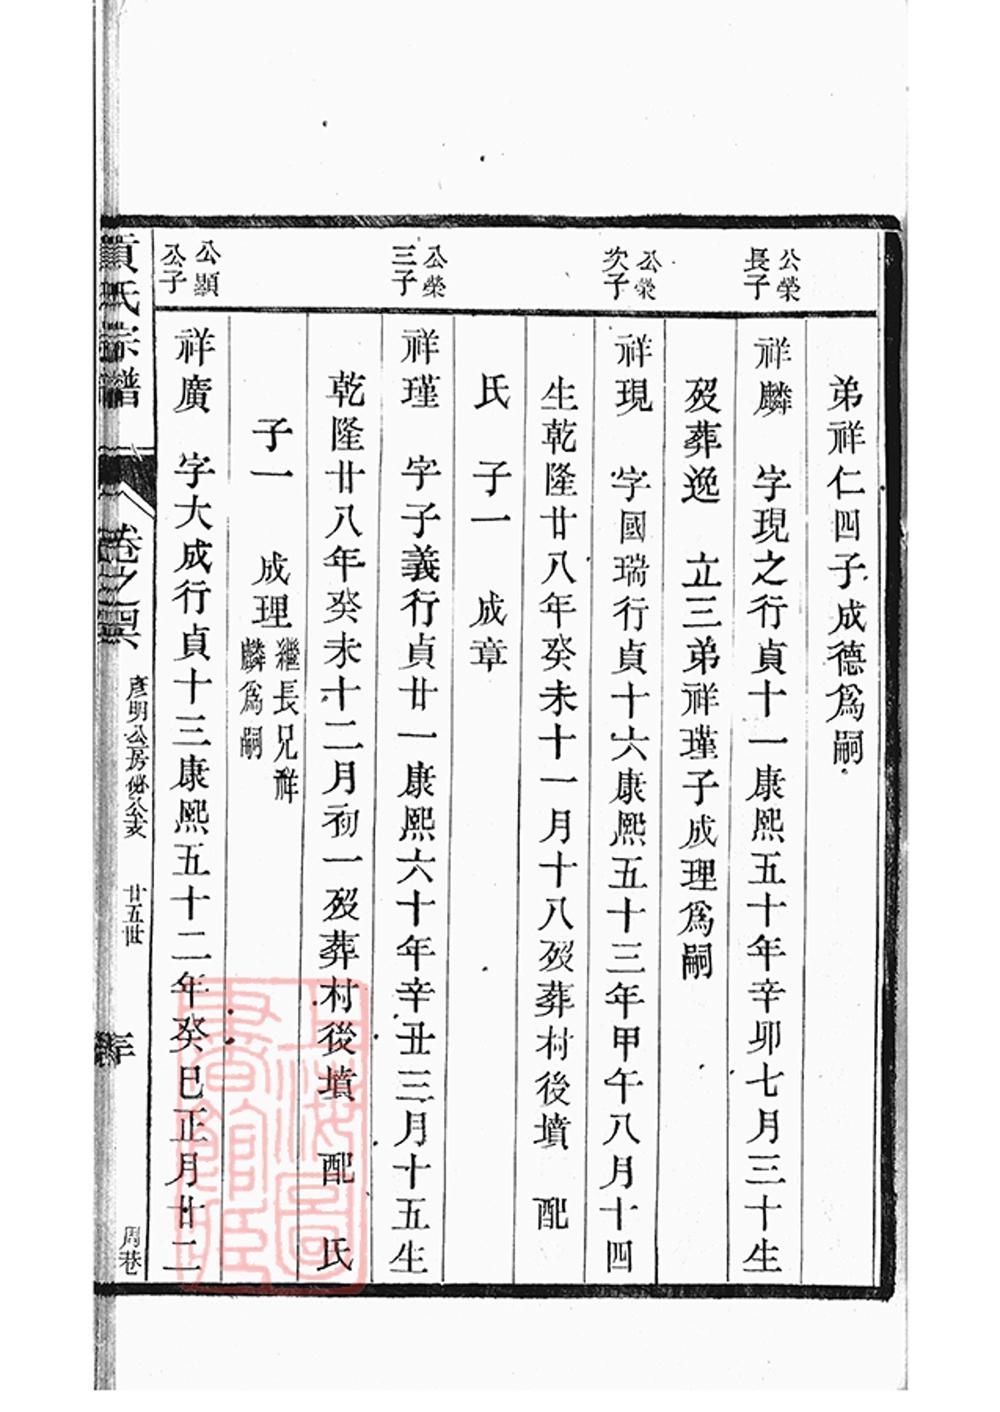 弟祥仁四子成德爲嗣
公榮長子
祥麟　字現之行貞十一康熙五十年辛卯七月三十生
歿葬逸　立三弟祥瑾子成理爲嗣
公榮次子
祥現　字國瑞行貞十六康熙五十三年甲午八月十四
生乾隆廿八年癸未十一月十八歿葬村後墳　配
氏　子一　成章
公榮三子
祥瑾　字子義行貞廿一康熙六十年辛丑三月十五生
乾隆廿八年癸未十二月初一歿葬村後墳　配　氏
子一　成理繼長兄祥麟爲嗣
公顯公子
祥廣　字大成行貞十三康熙五十二年癸巳正月廿二
氏宗譜　卷之四　彥明公房　公支　廿五世　周巷
上海圖書館藏